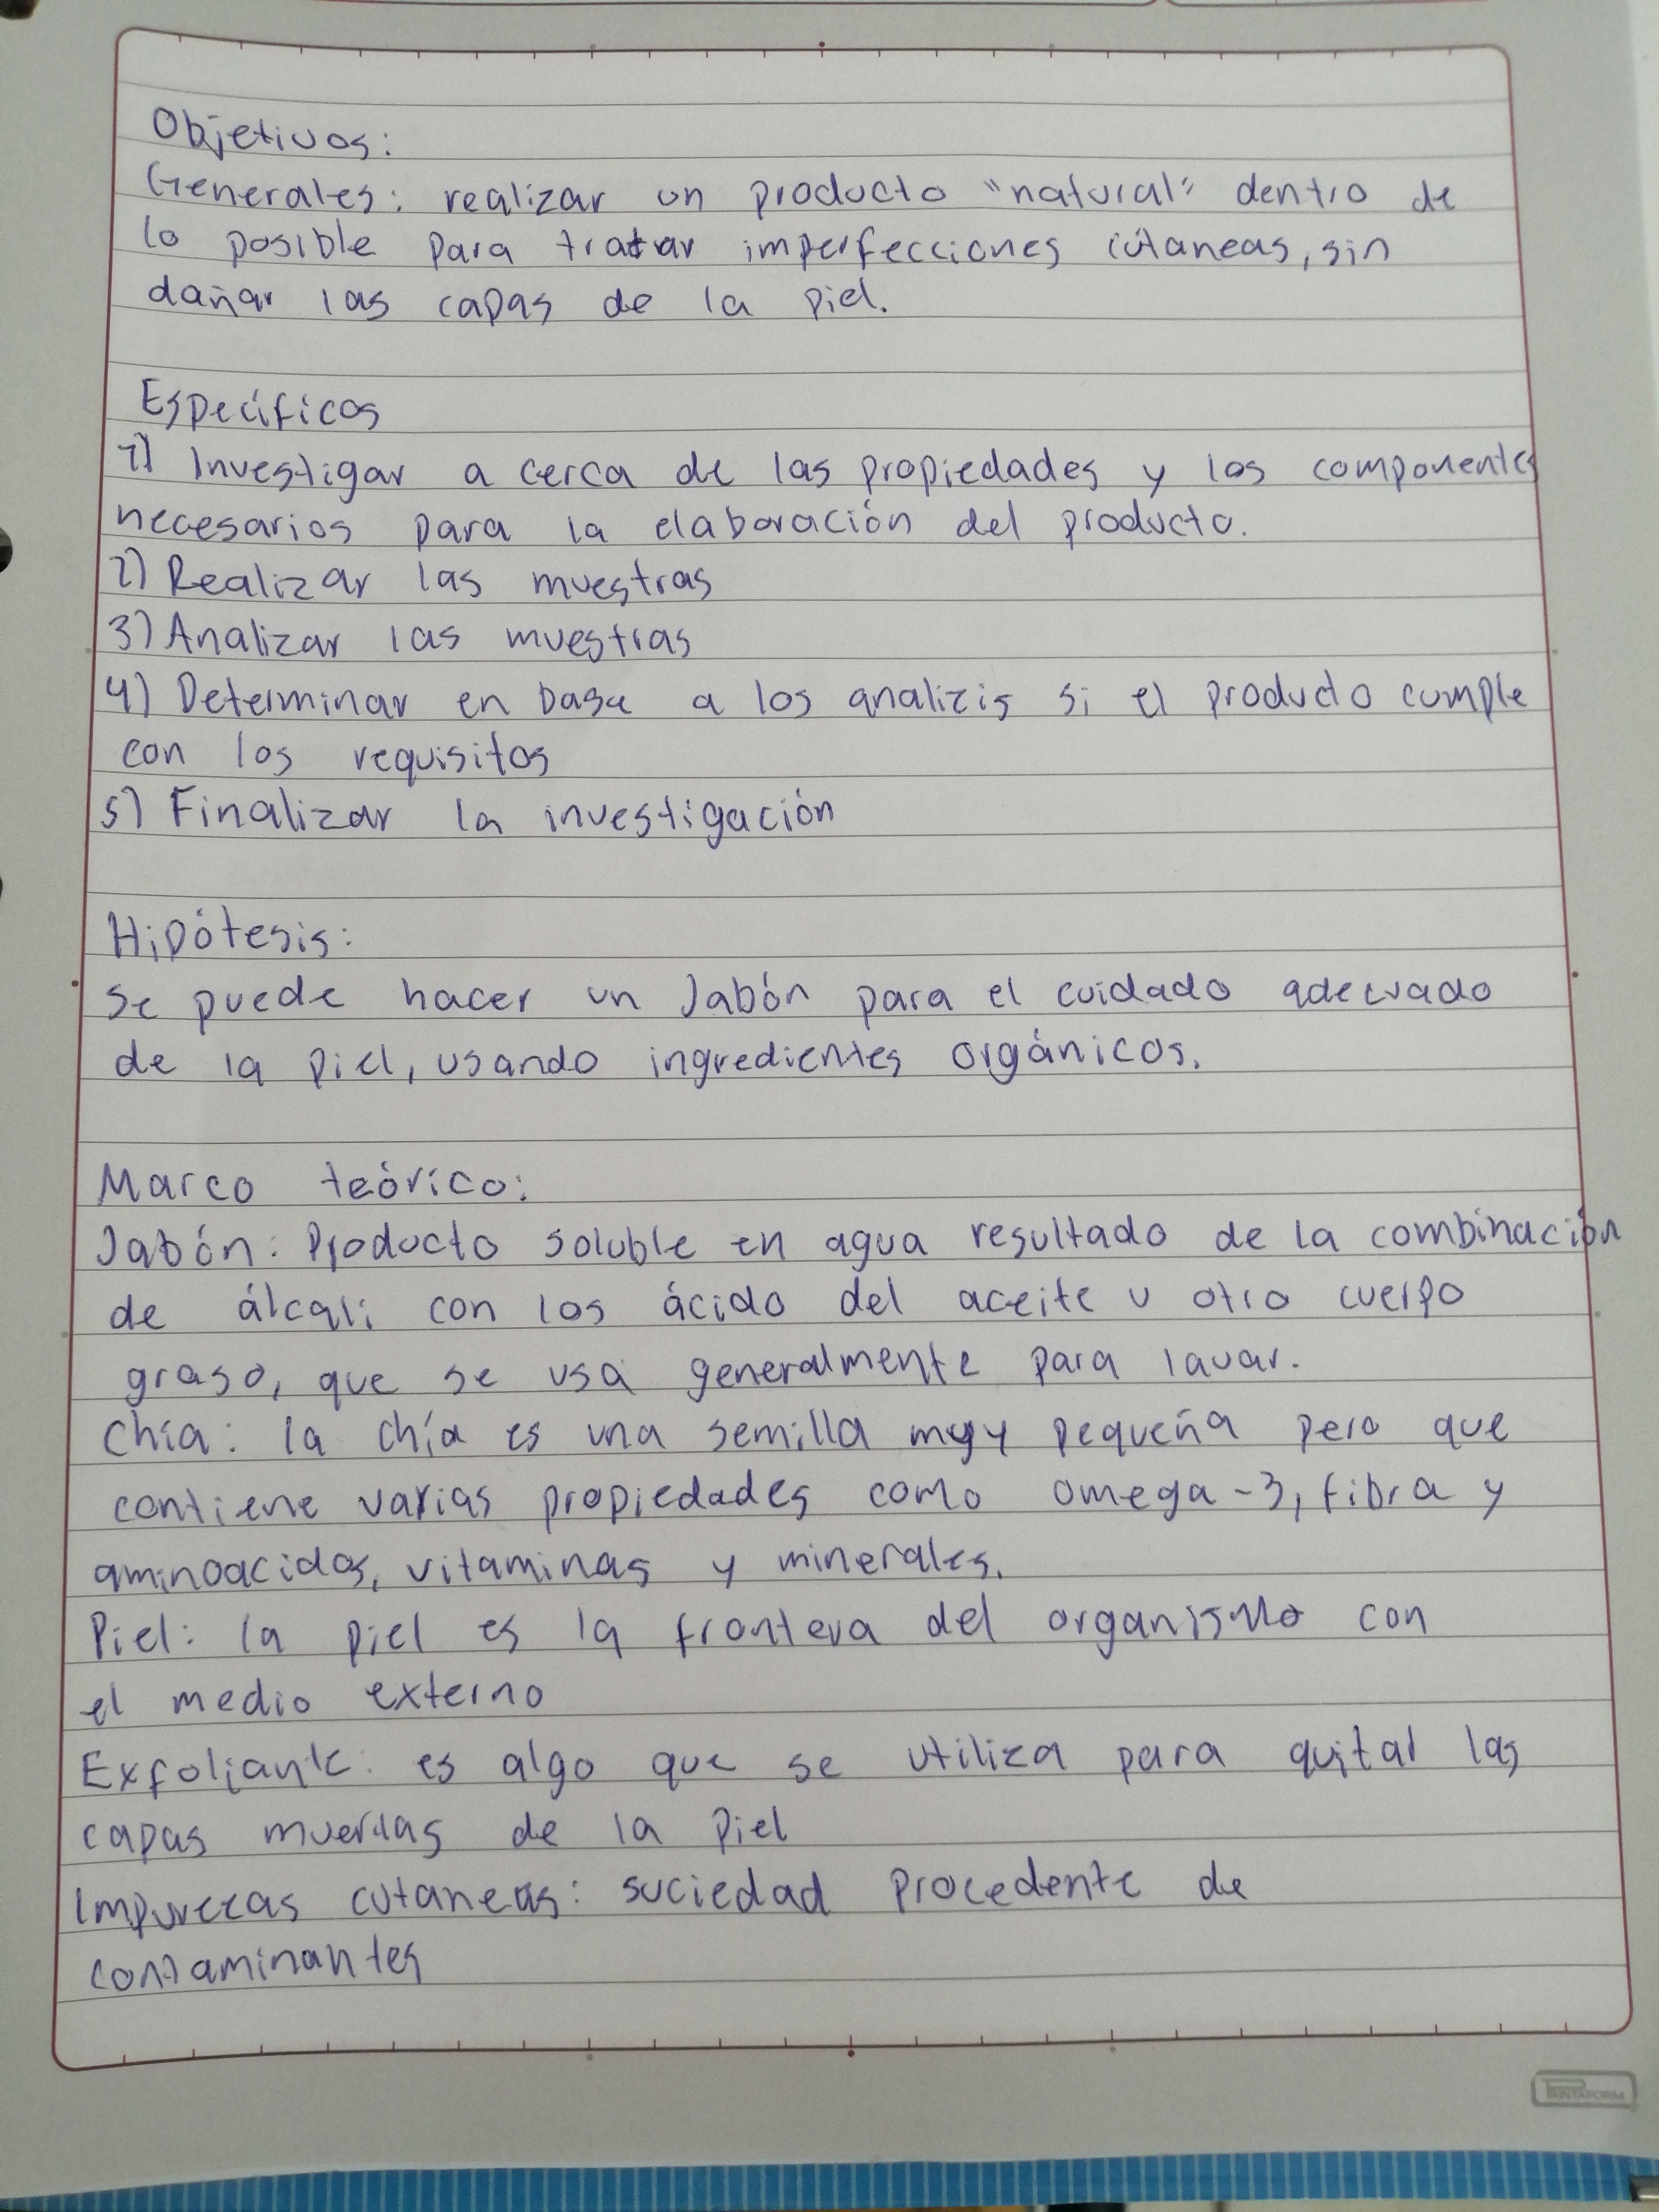 Objetivos:
Generales: realizar un producto "natural" dentro de
lo posible para tratar imperfecciones cútaneas, sin
dañar las capas de la piel.
Específicos
1) Investigar a cerca de las propiedades y los componentes
necesarios para la elaboración del producto.
2) Realizar las muestras
3) Analizar las muestras
4) Determinar en base a los analizis si el producto cumple
con los requisitos
5) Finalizar la investigación
Hipótesis:
Se puede hacer un Jabón para el cuidado adecuado
de la piel, usando ingredientes orgánicos.
Marco teórico:
Jabón: Producto soluble en agua resultado de la combinación
de álcali con los ácido del aceite u otro cuerpo
graso, que se usa generalmente para lavar.
Chía: la chía es una semilla muy pequeña pero que
contiene varias propiedades como omega-3, fibra y
aminoacidos, vitaminas y minerales.
Piel: la piel es la frontera del organismo con
el medio externo
Exfoliante: es algo que se utiliza para quitar las
capas muertas de la piel
Impurezas cutaneas: suciedad procedente de
contaminantes
PRINTAFORM